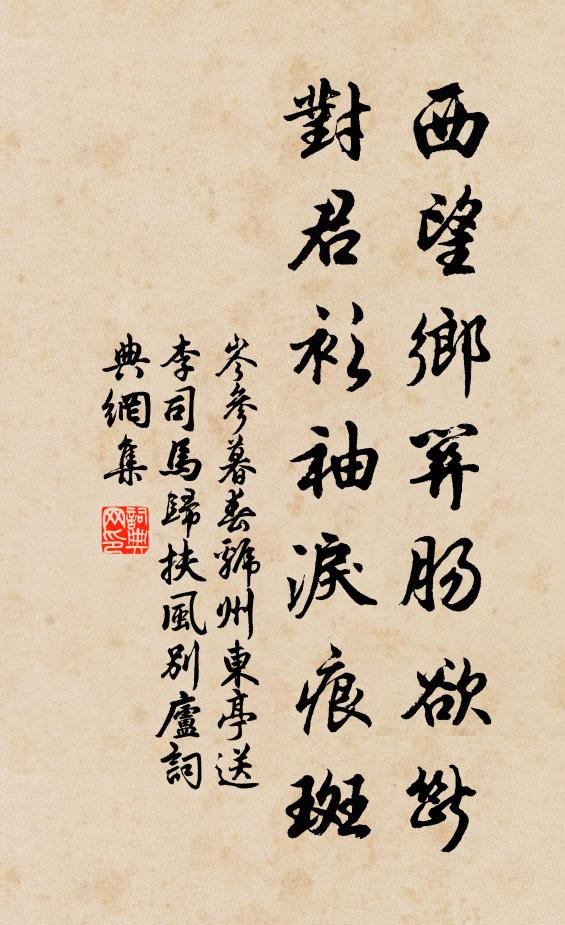 西望鄉關腸欲斷
對君衫袖淚痕斑
岑參暮春虢州東亭送
李司馬歸扶風別廬詞
典網集
詞典
网印